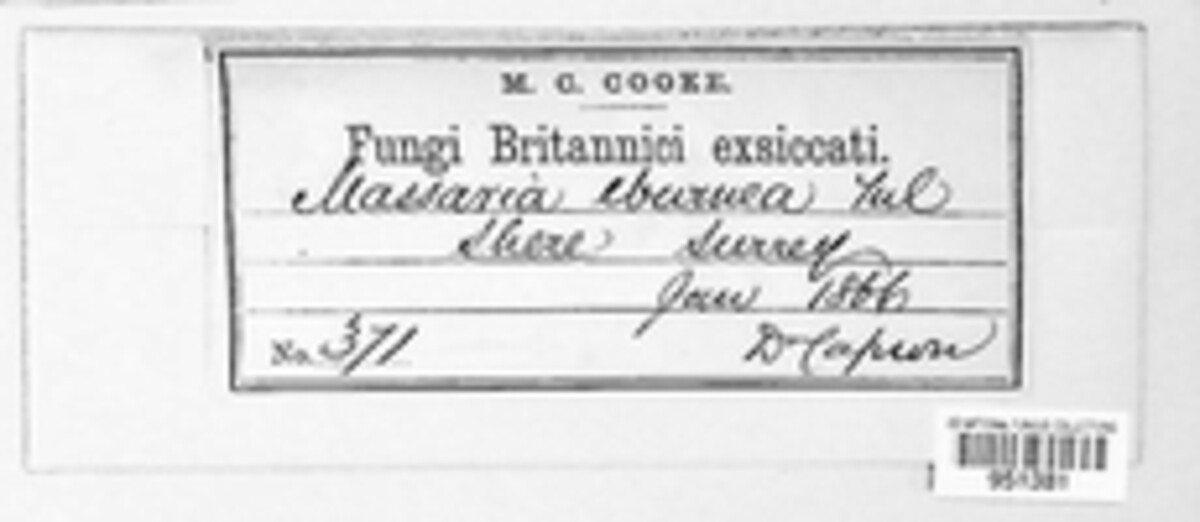 M. C. COOKE.
Fungi Britannici exsiccati.
Massaria eburnea Tul
Shere Surrey
Jan 1866
No. 371 Dr Capron
951381